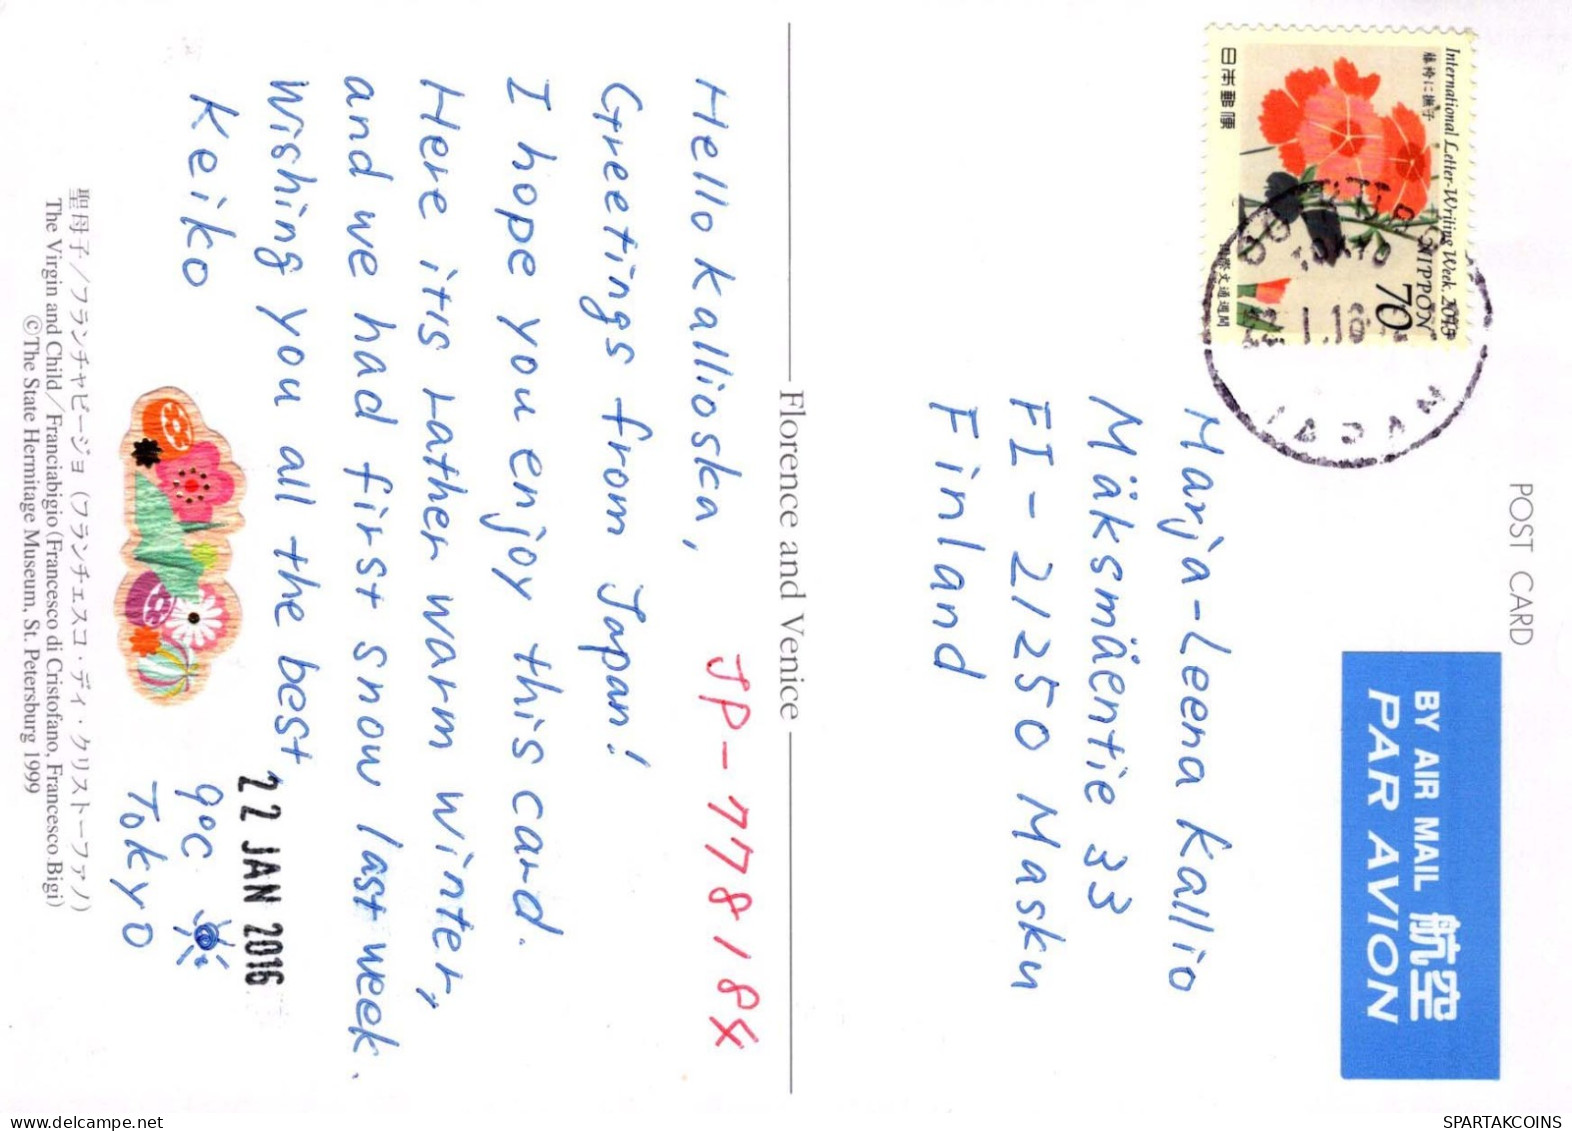 POST CARD
BY AIR MAIL 航空
PAR AVION
International Letter-Writing Week. 2015
藤袴に撫子
NIPPON
70
日本郵便
国際文通週間
JAPAN
Marja-Leena Kallio
Mäksmäentie 33
FI-21250 Masku
Finland
Florence and Venice
JP-778184
Hello kallioska,
Greetings from Japan!
I hope you enjoy this card.
Here it is rather warm winter,
and we had first snow last week.
Wishing you all the best,
Keiko
22 JAN 2016
9°C
Tokyo
聖母子／フランチャビージョ（フランチェスコ・ディ・クリストーファノ）
The Virgin and Child／Franciabigio (Francesco di Cristofano, Francesco Bigi)
©The State Hermitage Museum, St. Petersburg 1999
SPARTAKCOINS